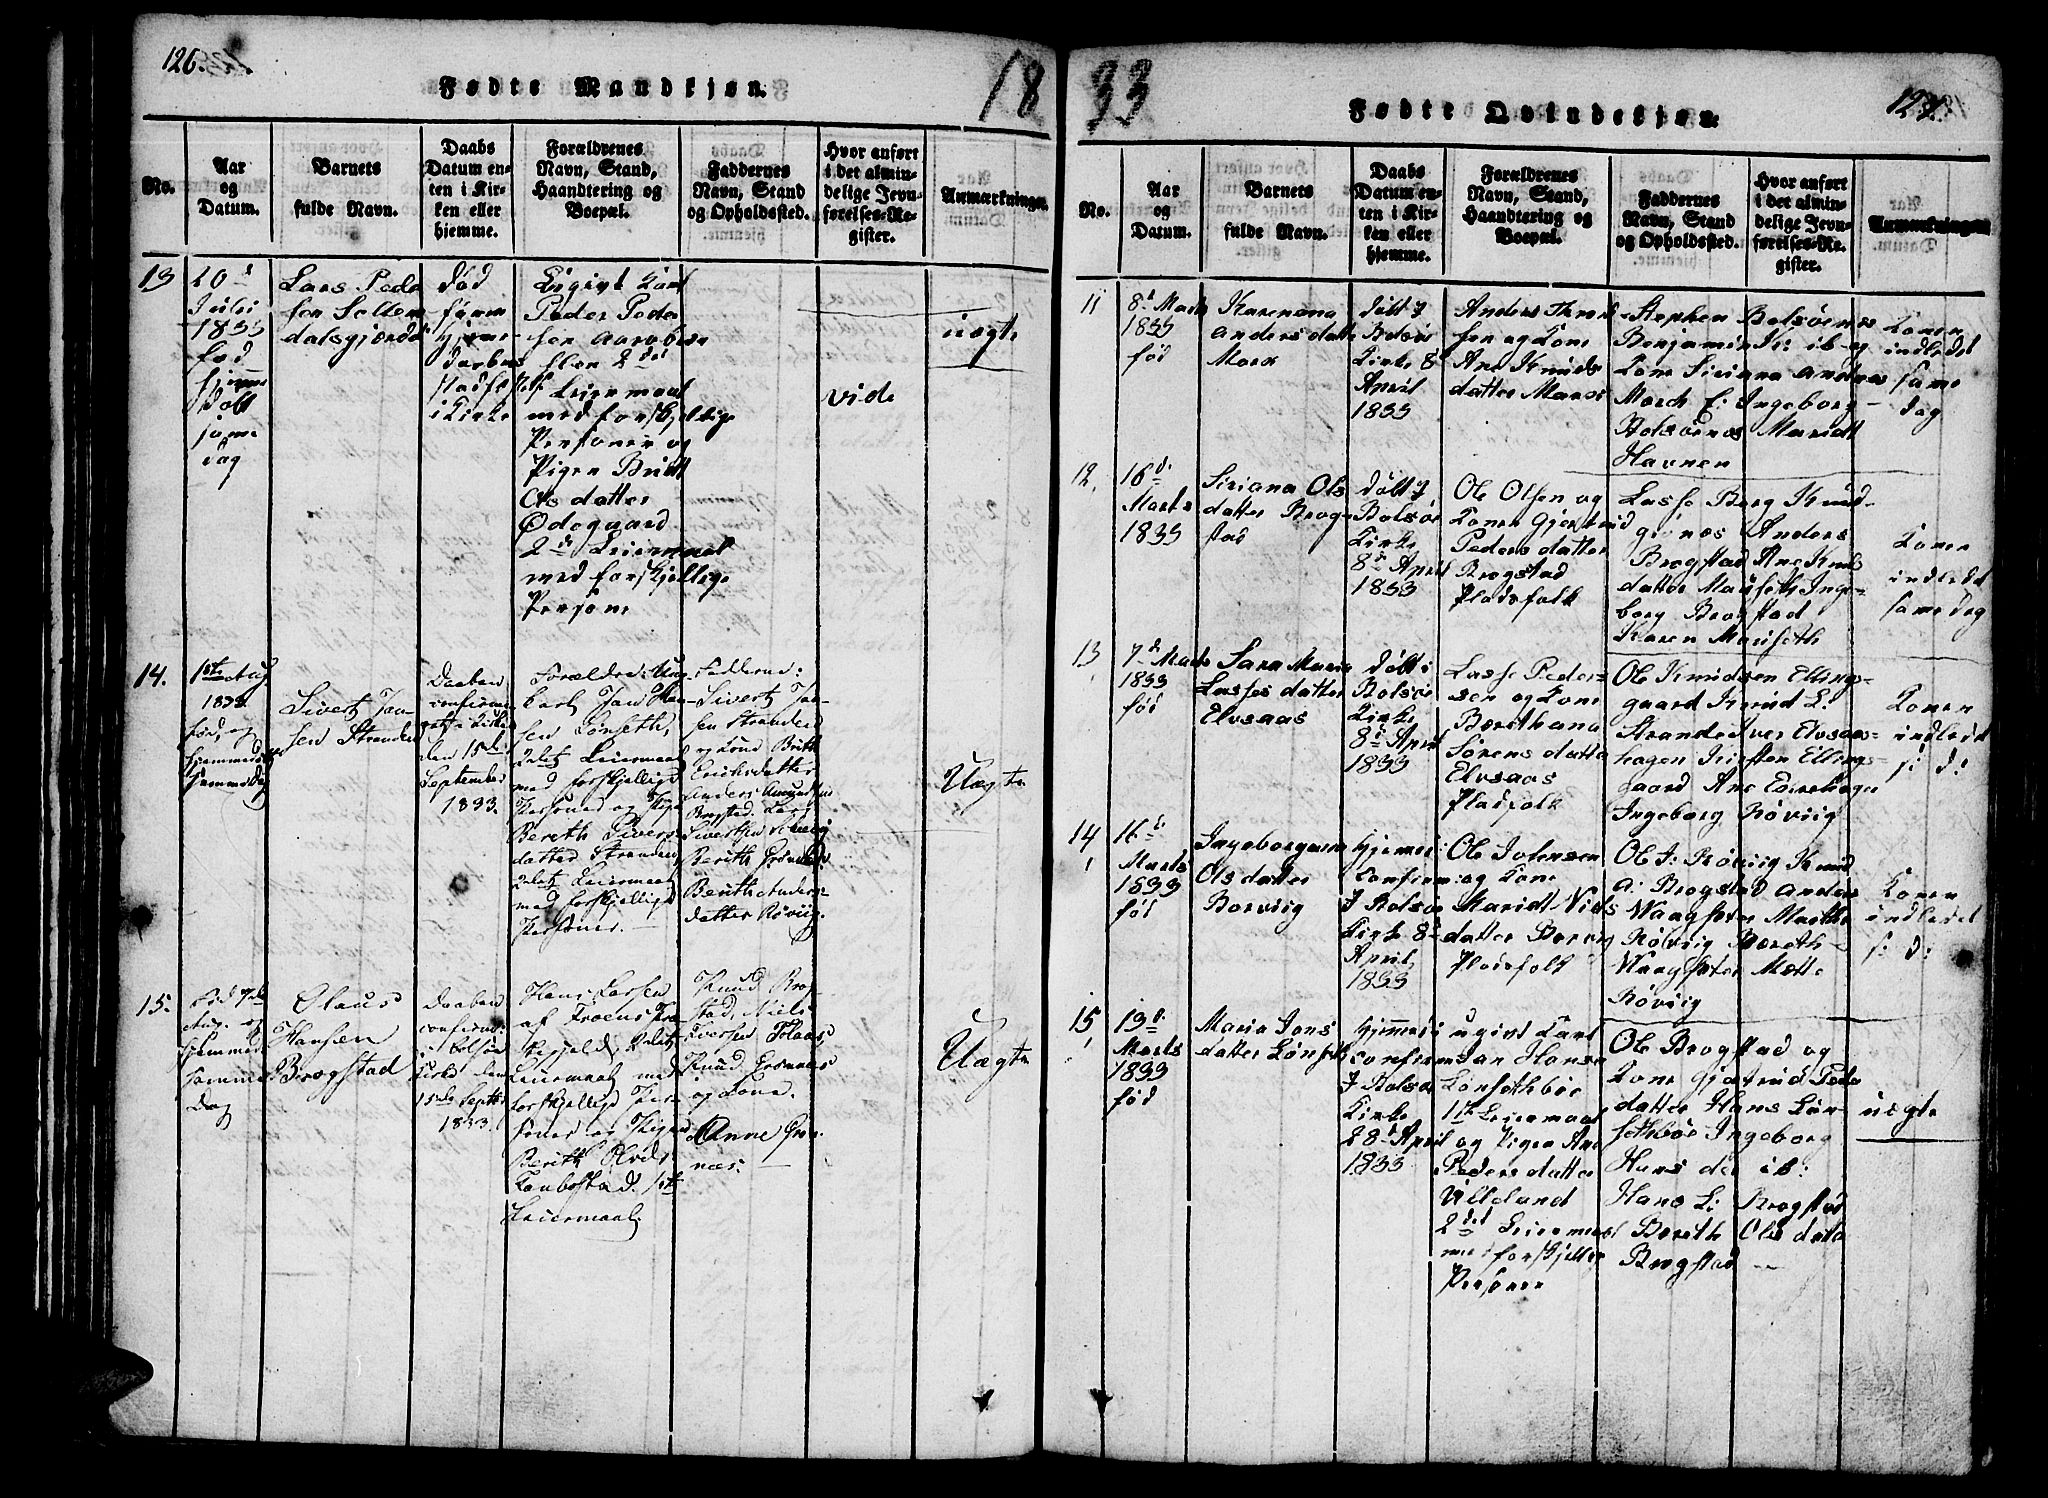 126.
Fødte Mandkjøn.
18
No.
Aar
og
Datum.
Barnets
fulde Navn.
Daabs
Datum en-
ten i Kir-
ken eller
hjemme.
Forældrenes
Navn, Stand,
Haandtering og
Boepæl.
Faddernes
Navn, Stand
og Opholdssted.
Hvor anført
i det almin-
delige Jevn-
førelses-Re-
gister.
Anmærkninger.
13
20
Julii
1833
fød
hjemme
døbt
same
dag
Lars Peder
sen Solem
dalsgjerde
død
førin
hjeme
daaben
stadfest
i Kirke
Ugivt Karl
Peder Peder
sen
2det
Leiermaal
med forskjellige
Personer og
Pigen Britt
Ols datter
Ødegaard
2de Leiermaal
med forskjellige
Persone
vide
uægte
14.
1ste Aug
1833
fød, og
Sivert Jan-
sen Stranden
Daaben
confirme
ret i Kirken
den 15de
September
1833.
Forældre: Ung
karl Jan Han-
sen Lønseth,
2det Leiermaal
med forskjellige
Personer og Pige
Bereth Sivers-
datter Stranden,
2det Leiermaal
med forskjellige
Personer.
Fadderne:
Sivert Jan-
sen Stranden
og Kone Brith
Ericksdatter
Anders Amundsen
Brogstad. Lars
Sivertsen
Berith
Berith Anders-
datter Røviig.
Uægte
15.
Fød 7de
Aug. og
hjemmed.
samme
Dag
Olaus
Hansen
Brogstad
Daaben
confirme:
i Bolsø
Kirke den
15de Septbr
1833.
Hans Larsen
af
2det
Leiermaal med
forskjellige Per-
soner og Pigen
Berith Olsdr.
1ste
Leiermaal.
Knud Brog-
stad, Niels
Iversen
Knud
og Kone.
Anne
næs.
Uægte
33
Fødte Qvindekjøn.
127.
No.
Aar
og
Datum.
Barnets
fulde Navn.
Daabs
Datum en-
ten i Kir-
ken eller
hjemme.
Forældrenes
Navn, Stand,
Haandtering og
Boepæl.
Faddernes
Navn, Stand
og Opholdssted.
Hvor anført
i det almin-
delige Jevn-
førelses-Re-
gister.
Anmærkninger.
11
8d Marts
1833
fød
Karenana
Anders datter
Moen
døbt i
Bolsø
Kirke 8d
April
1833
Anders
sen og Kone
Ane Knuds
datter
Stephen Bolsøenæs
Benjamin ib og
Kone Siriana Andreas
March E: Ingeborg
Bolsøenæs Maridt
Havnen
Konen
indledet
same
dag
12.
16d
Marts
1833
Siriana Ols
datter Brog-
stad
døbt i
Bolsø
Kirke
8d April
1833
Ole Olsen og
Konen Gjertrud
Peders datter
Brogstad
Pladsfolk
Lasse Berg Knud
Anders
Brogstad Ane Knuds
datter Mauseth Inge-
borg Brogstad
Karen Mauseth
Konen
indledet
same dag
13
7d Marts
1833
fød
Sara Maria
Lasses datter
Elvsaas
døbt i
Bolsø
Kirke
8d April
1833
Lasse Peder-
sen og Kone
Berethana
Sørens datter
Elvsaas
Pladsfolk
Ole Knudsen Elling-
gaard Knud L:
Strande Iver Elvsaas-
hagen Kirsten Elling-
gaard Ane
Ingeborg Røviig
Konen
indledet
s: d:
14
16d
Marts
1833
fød
Ingeborgana
Ols datter
Borviig
hjeme:
confirm:
i Bolsø
Kirke 8d
April
1833
Ole Johnsen
og Kone
Maridt Niels
datter Borvig
Pladsfolk
Ole J: Røviig Knud
A: Brogstad Anders
Waagseter Marithe
Rølvig Bereth
Waagseter Mætte
Røviig
Konen
indledet
s: d:
15
19d
Marts
1833
fød
Maria Jans
datter Lønseth
hjemme:
confirm
i Bolsø
Kirke
28d April
1833
ugivt Karl
Jan Hansen
Lønsethbøe
1ste Leiermaal
og Pigen Ane
Peders datter
2det Leiermaal
med forskjellige
Personer
Ole Brogstad og
Kone Gjertrud Peders
datter Hans Løn-
sethbøe Ingeborg
Hans dr ib:
Hans L: Brogstad
Bereth Ols datter
Brogstad
uægte